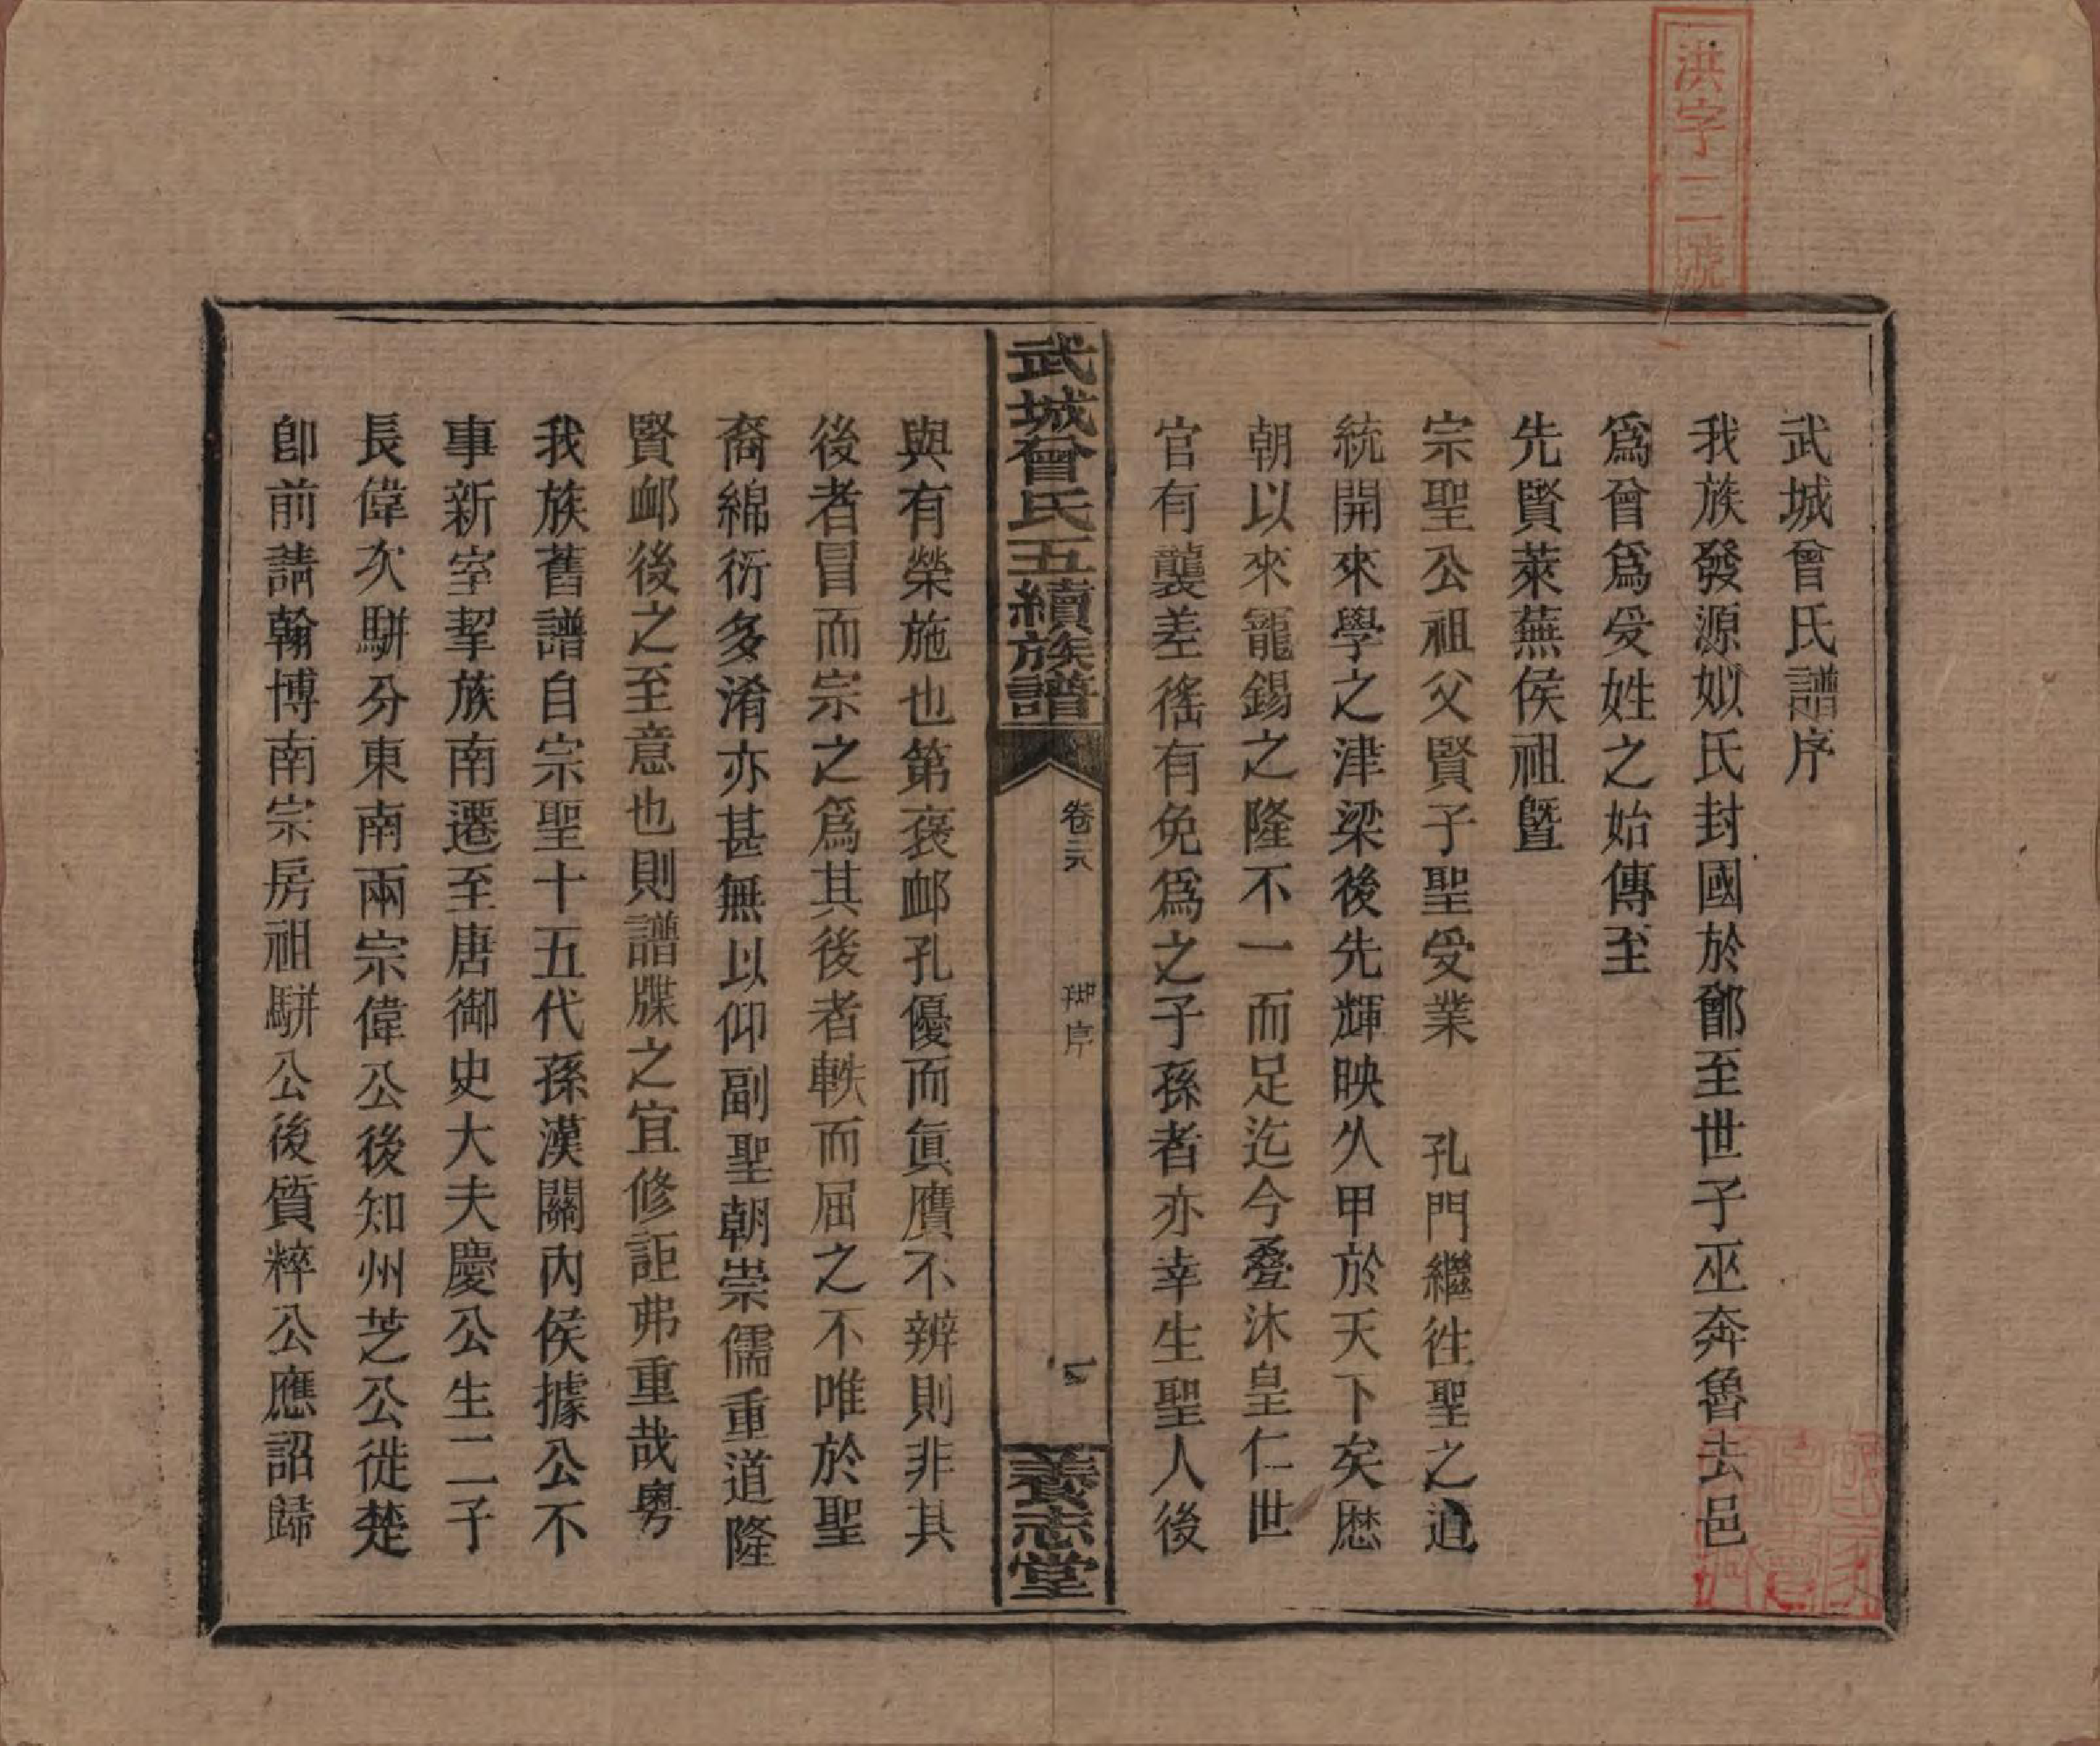 洪字二號
武城曾氏譜序
我族發源姒氏封國於鄫至世子巫奔魯去邑
爲曾爲受姓之始傳至
先賢萊蕪侯祖曁
宗聖公祖父賢子聖受業　孔門繼徃聖之道
統開來學之津梁後先輝映久甲於天下矣歴
朝以來寵錫之隆不一而足迄今叠沐皇仁世
官有襲差徭有免爲之子孫者亦幸生聖人後
武城曾氏五續族譜
卷二八
序
養志堂
與有榮施也第褒䘏孔優而眞贋不辨則非其
後者冒而宗之爲其後者軼而屈之不唯於聖
裔綿衍多淆亦甚無以仰副聖朝崇儒重道隆
賢䘏後之至意也則譜牒之宜修詎弗重哉粵
我族舊譜自宗聖十五代孫漢關內侯據公不
事新室挈族南遷至唐御史大夫慶公生二子
長偉次駢分東南兩宗偉公後知州芝公徙楚
卽前請翰博南宗房祖駢公後質粹公應詔歸